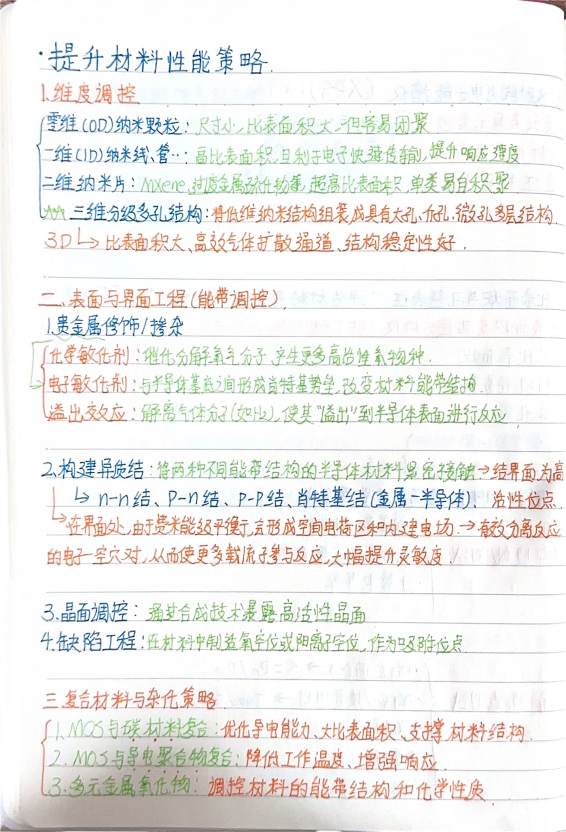 ·提升材料性能策略.
1.维度调控
零维(0D)纳米颗粒：尺寸小,比表面积大,但容易团聚
一维(1D)纳米线、管…：高比表面积,且利于电子快速传输,提升响应速度
二维纳米片：MXene,过渡金属硫化物等,超高比表面积,单类易自积聚
三维分级多孔结构：将低维纳米结构组装成具有大孔、介孔、微孔多层结构.
3D↳比表面积大、高效气体扩散通道、结构稳定性好.
二、表面与界面工程(能带调控).
1.贵金属修饰/掺杂
化学敏化剂：催化分解氧气分子,产生更多高活性氧物种.
电子敏化剂：与半导体基底之间形成肖特基势垒,改变材料能带结构.
溢出效应：解离气体分子(如H₂),使其"溢出"到半导体表面进行反应
2.构建异质结：将两种不同能带结构的半导体材料紧密接触→结界面为高
↳n-n结、p-n结、p-p结、肖特基结(金属-半导体).活性位点.
↳在界面处,由于费米能级平衡,会形成空间电荷区和内建电场.→有效分离反应
的电子-空穴对,从而使更多载流子参与反应,大幅提升灵敏度.
3.晶面调控：通过合成技术暴露高活性晶面
4.缺陷工程：在材料中制造氧空位或阳离子空位,作为吸附位点.
三.复合材料与杂化策略
1.MOS与碳材料复合：优化导电能力、大比表面积、支撑材料结构.
2.MOS与导电聚合物复合：降低工作温度、增强响应
3.多元金属氧化物：调控材料的能带结构和化学性质